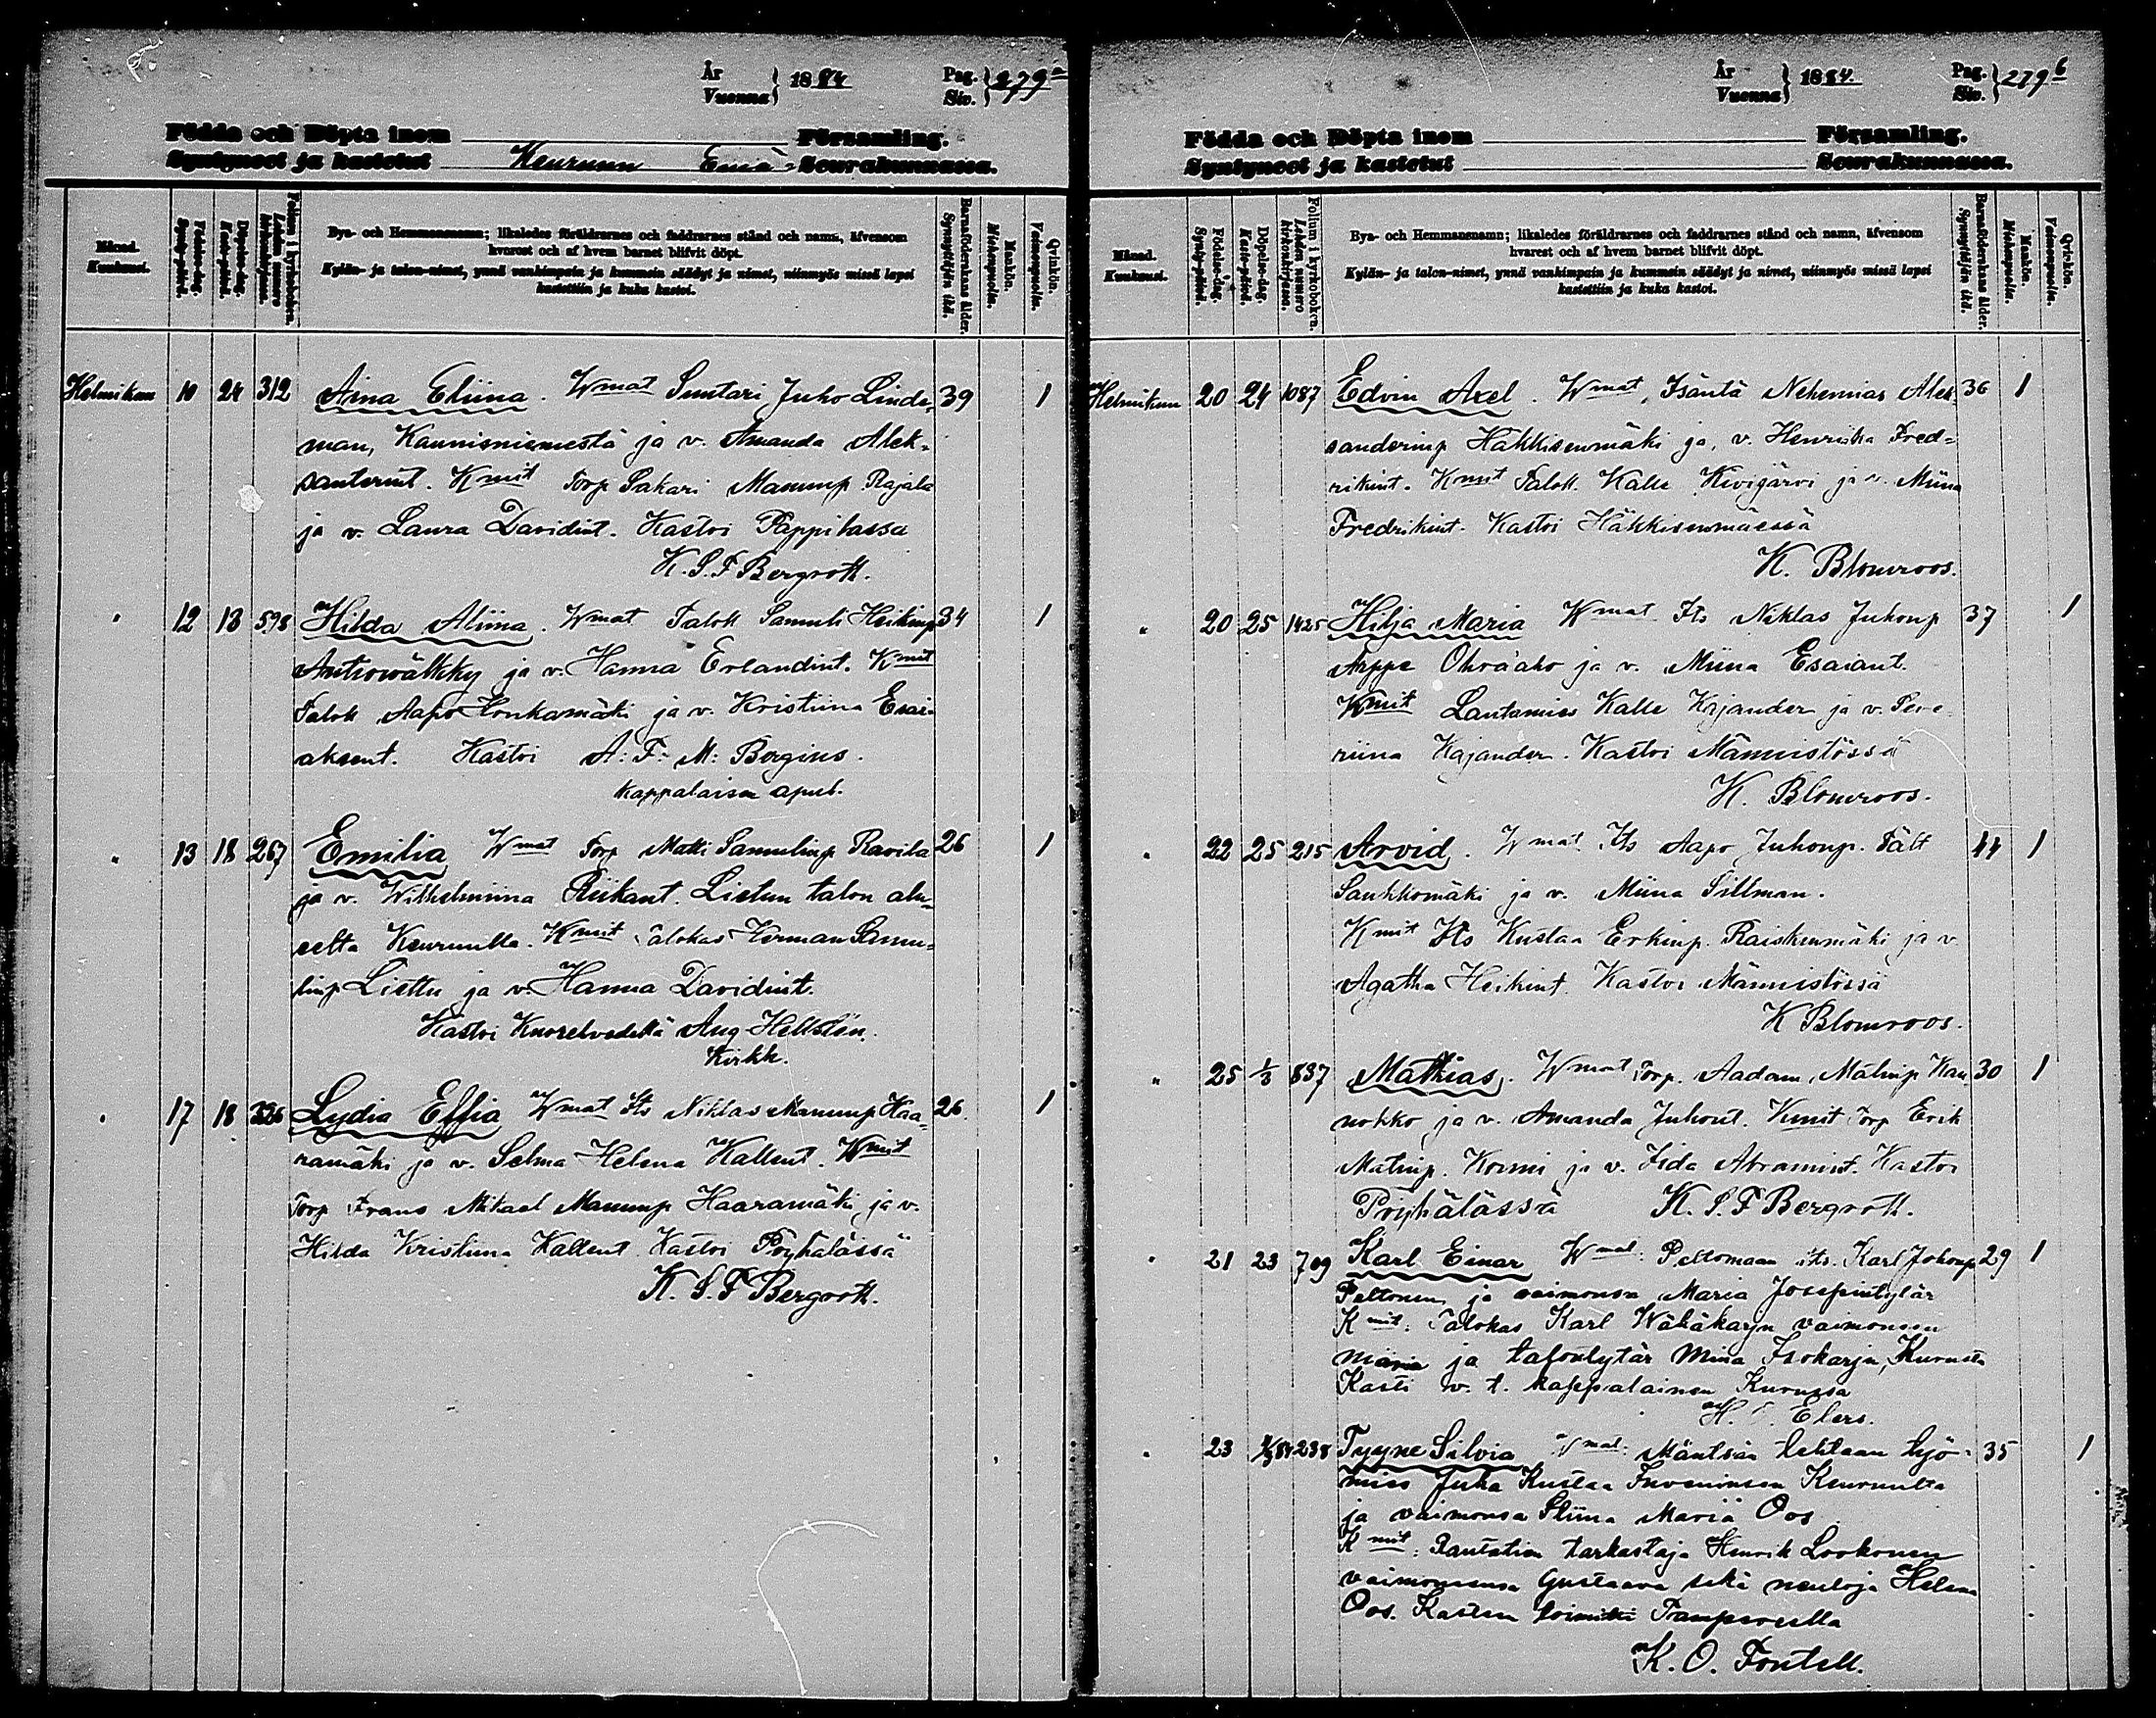 År
Vuonna } 1884
Pag.
Siv. } 279 a
Födda och Döpta inom Församling.
Syntyneet ja kastetut Keuruun Emä- Seurakunnassa.
Månad.
Kuukausi.
Födelse-dag.
Synty-päivä.
Döpelse-dag.
Kaste-päivä.
Folium i kyrkoboken.
Lehden numero kirkonkirjassa.
Bya- och Hemmansnamn; likaledes föräldrarnes och faddrarnes stånd och namn, äfvensom
hvarest och af hvem barnet blifvit döpt.
Kylän- ja talon-nimet, ynnä vanhimpain ja kummein säädyt ja nimet, niinmyös missä lapsi
kastettiin ja kuka kastoi.
Barnaföderskans ålder.
Synnyttäjän ikä.
Mankön.
Miehenpuolia.
Qvinkön.
Vaimonpuolia.
Helmikuu 10 24 312 Aina Eliina. Wmat Suutari Juho Linde- 39 1
man, Kaunisniemestä ja v. Amanda Alek-
santerint. Kmit Torp Sakari Manunp Rajala
ja v. Laura Davidint. Kastoi Pappilassa
K. S. F Bergroth.
" 12 13 598 Hilda Aliina. Wmat Talok Samuli Heikinp 34 1
ja v. Hanna Erlandint. Kmit
Talok Aapo Honkamäki ja v. Kristiina Esai-
aksent. Kastoi A: F: M: Bergius.
kappalaisen apul.
" 13 18 267 Emilia Wmat Torp Matti Samulinp Ravila 26 1
ja v. Wilhelmiina Riikant. Liettun talon alu-
eelta Keuruulla. Kmit Talokas Herman Samu-
linp Liettu ja v. Hanna Davidint.
Kastoi Aug Hellsten.
Kirkk.
" 17 18 336 Lydia Effia Wmat Its Niklas Manunp Haa- 26 1
ramäki ja v. Selma Helena Kallent. Kmit
Torp Frans Mikael Manunp Haaramäki ja v.
Hilda Kristiina Kallent. Kastoi Pöyhälässä
K. S. F Bergroth.
År
Vuonna } 1884
Pag.
Siv. } 279 b
Födda och Döpta inom Församling.
Syntyneet ja kastetut Seurakunnassa.
Månad.
Kuukausi.
Födelse-dag.
Synty-päivä.
Döpelse-dag.
Kaste-päivä.
Folium i kyrkoboken.
Lehden numero kirkonkirjassa.
Bya- och Hemmansnamn; likaledes föräldrarnes och faddrarnes stånd och namn, äfvensom
hvarest och af hvem barnet blifvit döpt.
Kylän- ja talon-nimet, ynnä vanhimpain ja kummein säädyt ja nimet, niinmyös missä lapsi
kastettiin ja kuka kastoi.
Barnaföderskans ålder.
Synnyttäjän ikä.
Mankön.
Miehenpuolia.
Qvinkön.
Vaimonpuolia.
Helmikuu 20 24 1087 Edvin Axel. Wmat, Isäntä Nehemias Alek- 36 1
sanderinp Häkkisenmäki ja v. Henrika Fred-
rikint. Kmit Talok. Kalle Kivijärvi ja v. Miina
Fredrikint. Kastoi Häkkisenmäessä
K. Blomroos.
" 20 25 1425 Hilja Maria Wmat Its Niklas Juhonp 37 1
Arppe Ohraaho ja v. Miina Esaiant.
Kmit Lautamies Kalle Kajander ja v. Seve-
riina Kajander. Kastoi Männistössä
K. Blomroos.
" 22 25 215 Arvid. Wmat Its Aapo Juhonp. Fält 44 1
Saukkomäki ja v. Miina Sillman.
Kmit Its Kustaa Erkinp. Raiskinmäki ja v.
Agatha Heikint. Kastoi Männistössä
K Blomroos.
" 25 1/3 837 Mathias. Wmat Torp. Aadam Matinp Kan- 30 1
nokko ja v. Amanda Juhont. Kmit Torp Erik
Matinp. Kormi ja v. Iida Abramint. Kastoi
Pöyhälässä K. S. F Bergroth.
" 21 23 709 Karl Einar Wmat: Peltomaan its. Karl Johonp 29 1
Peltonen ja vaimonsa Maria Josefintytär
Kmit: Talokas Karl Wähäkarju vaimonsa
maria ja talontytär Mina Isokarju, Kurusta
Kasti v. t. kappalainen Kurussa
H. Elers.
" 23 238 Tyyne Silvia Wmat: Mäntsän tehtaan työ- 35 1
mies Juha Kustaa Keuruulta
ja vaimonsa Stiina Maria Oos
Kmit: Rautatien tarkastaja Henrik Lookonen
vaimonensa Gustaava sekä neuloja Helena
Oos. Kasteen toimitti Tampereella
K. O. Fontell.